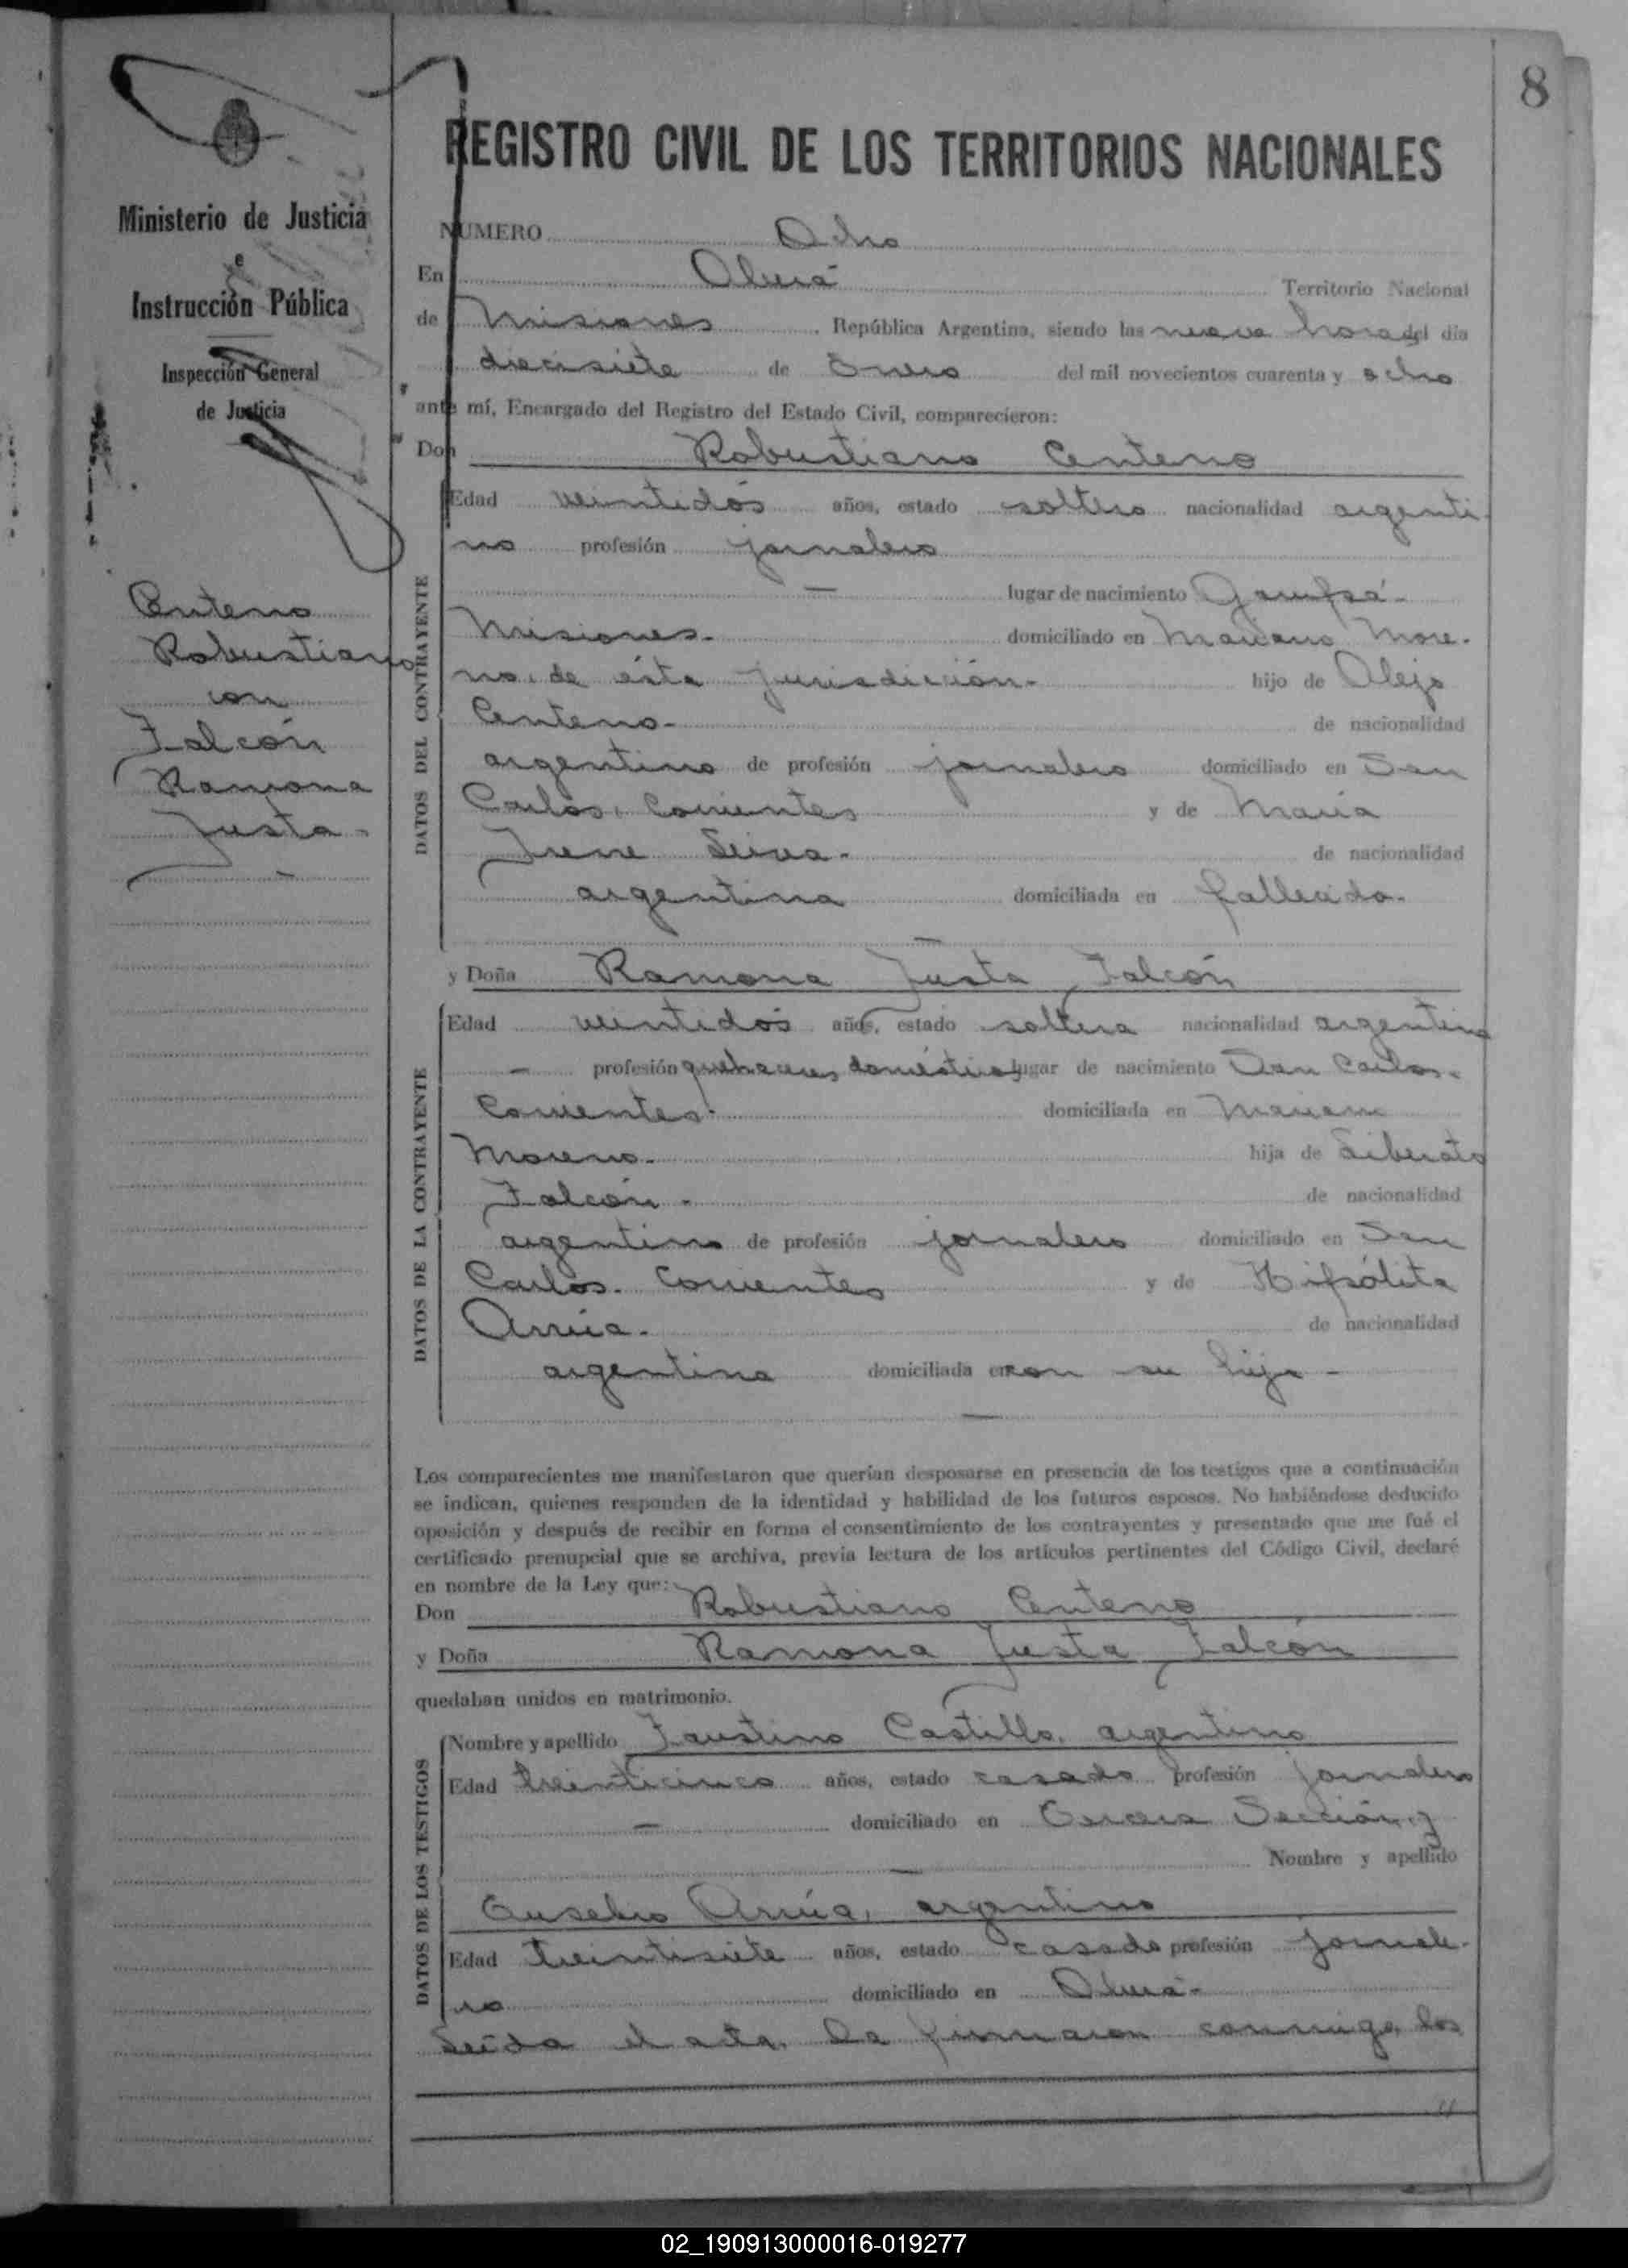 8
Ministerio de Justicia
e
Instrucción Pública
Inspección General
de Justicia
Centeno
Robustiano
con
Falcón
Ramona
Justa -
REGISTRO CIVIL DE LOS TERRITORIOS NACIONALES
NUMERO Ocho
En Oberá Territorio Nacional
de Misiones República Argentina, siendo las nueve horas del día
diecisiete de Enero del mil novecientos cuarenta y ocho
ante mí, Encargado del Registro del Estado Civil, comparecieron:
Don Robustiano Centeno
DATOS DEL CONTRAYENTE
Edad veintidós años, estado soltero nacionalidad argenti-
no profesión jornalero
— lugar de nacimiento
Misiones.- domiciliado en Mariano More-
no, de ésta jurisdicción.- hijo de Alejo
Centeno.- de nacionalidad
argentino de profesión jornalero domiciliado en San
Carlos, Corrientes y de María
Irene Leiva.- de nacionalidad
argentina domiciliada en fallecida.-
—
y Doña Ramona Justa Falcón
DATOS DE LA CONTRAYENTE
Edad veintidós años, estado soltera nacionalidad argentina
- profesión quehaceres domésticos lugar de nacimiento San Carlos.-
Corrientes.- domiciliada en Mariano
Moreno.- hija de Liberato
Falcón.- de nacionalidad
argentino de profesión jornalero domiciliado en San
Carlos. Corrientes y de Hipólita
Arrúa.- de nacionalidad
argentina domiciliada en con su hija -
—
Los comparecientes me manifestaron que querían desposarse en presencia de los testigos que a continuación
se indican, quienes responden de la identidad y habilidad de los futuros esposos. No habiéndose deducido
oposición y después de recibir en forma el consentimiento de los contrayentes y presentado que me fué el
certificado prenupcial que se archiva, previa lectura de los artículos pertinentes del Código Civil, declaré
en nombre de la Ley que:
Don Robustiano Centeno
y Doña Ramona Justa Falcón
quedaban unidos en matrimonio.
DATOS DE LOS TESTIGOS
Nombre y apellido Faustino Castillo, argentino
Edad treinticinco años, estado casado profesión jornalero
— domiciliado en Tercera Sección, y
— Nombre y apellido
Eusebio Arrúa, argentino
Edad treintisiete años, estado casado profesión jornale-
ro domiciliado en Oberá-
Leída el acta, la firmaron conmigo, los
02_190913000016-019277